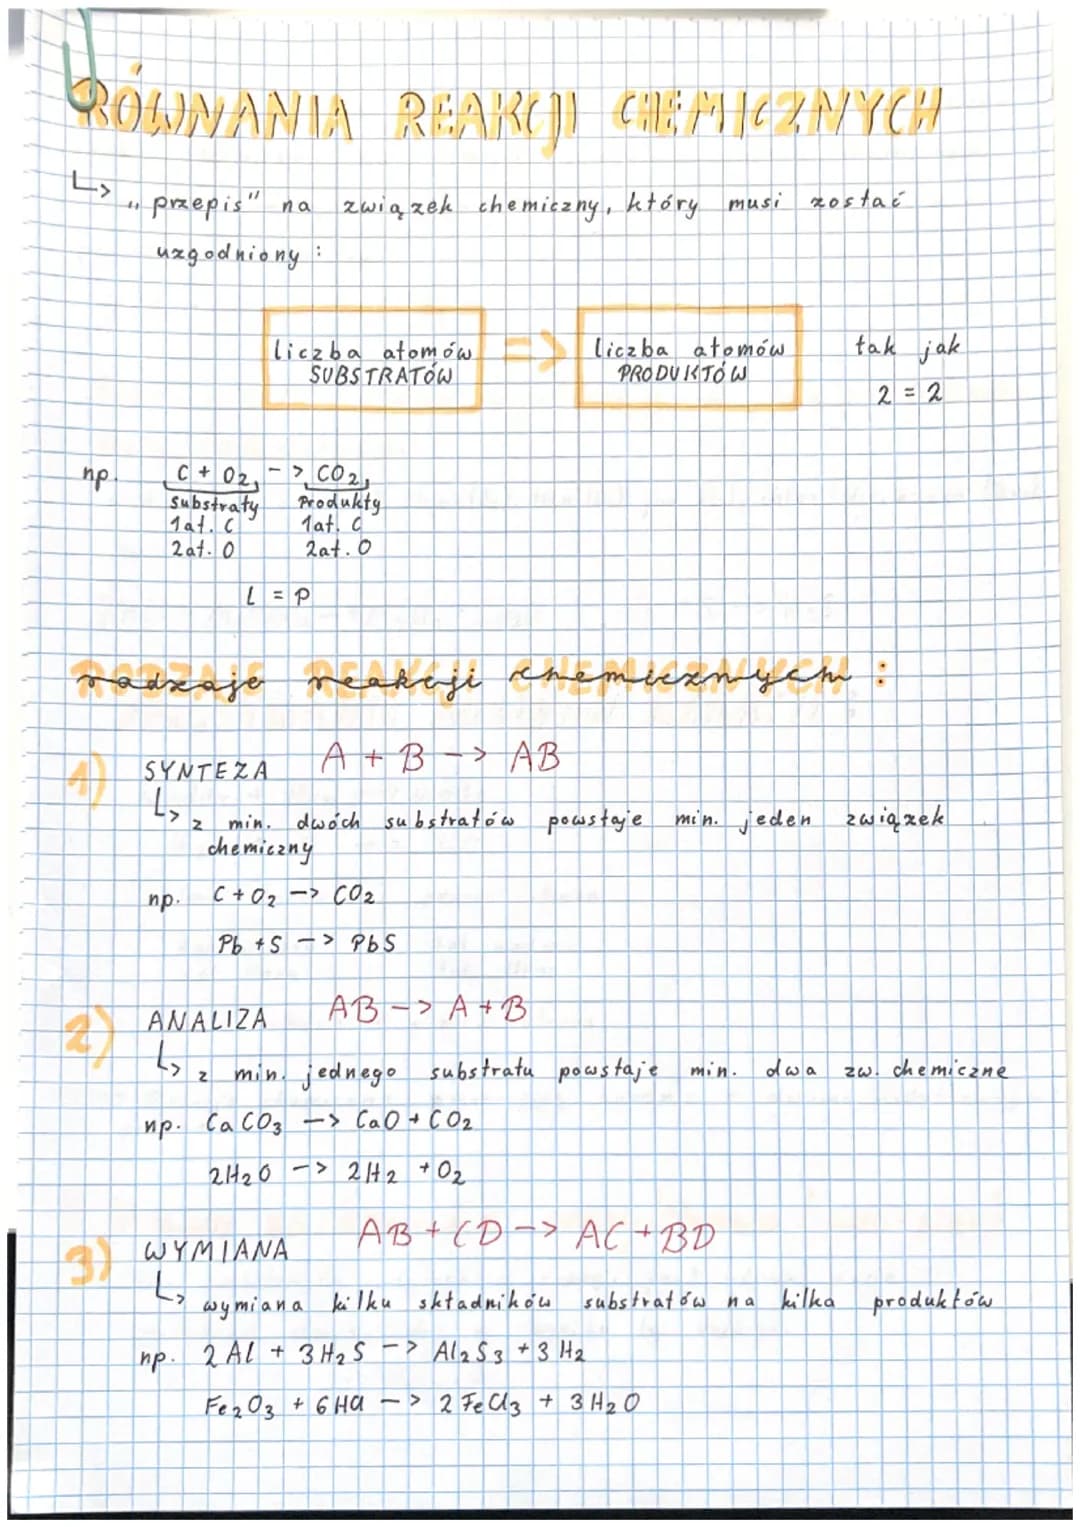 RÓWNANIA REAKCJI CHEMICZNYCH
↳ „przepis" na związek chemiczny, który musi zostać
uzgodniony :
liczba atomów => liczba atomów tak jak
SUBSTRATÓW PRODUKTÓW 2 = 2
np. C + O2 -> CO2
Substraty Produkty
1at. C 1at. C
2at. O 2at. O
L = P
rodzaje reakcji chemicznych :
1) SYNTEZA A + B -> AB
↳ z min. dwóch substratów powstaje min. jeden związek
chemiczny
np. C + O2 -> CO2
Pb + S -> PbS
2) ANALIZA AB -> A + B
↳ z min. jednego substratu powstaje min. dwa zw. chemiczne
np. CaCO3 -> CaO + CO2
2H2O -> 2H2 + O2
3) WYMIANA AB + CD -> AC + BD
↳ wymiana kilku składników substratów na kilka produktów
np. 2Al + 3H2S -> Al2S3 + 3H2
Fe2O3 + 6HCl -> 2FeCl3 + 3H2O